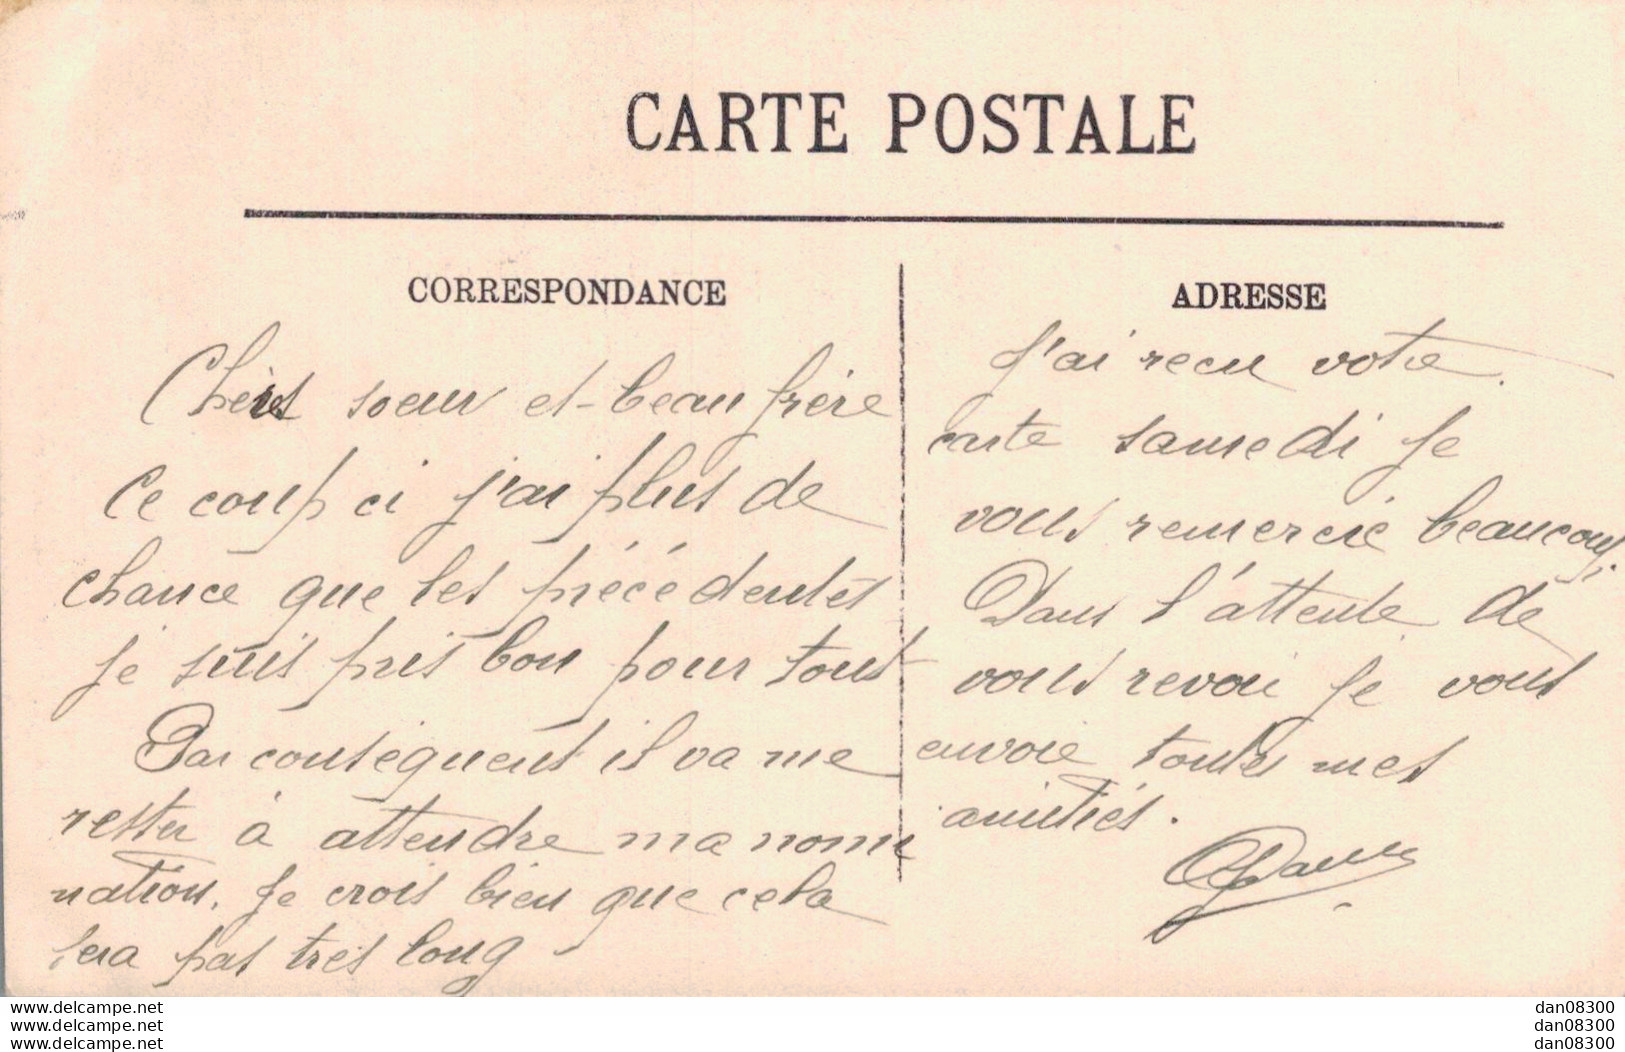 CARTE POSTALE
CORRESPONDANCE
Chères soeur et beau frère
Ce coup ci j'ai plus de
chance que les précédentes
je suis pris bon pour tout
Par conséquent il va me
rester à attendre ma nomi
nation. Je crois bien que cela
sera pas très long
ADRESSE
J'ai recu votre
carte samedi je
vous remercie beaucoup.
Dans l'attente de
vous revoir je vous
envoie toutes mes
amitiés.
www.delcampe.net
www.delcampe.net
www.delcampe.net
dan08300
dan08300
dan08300